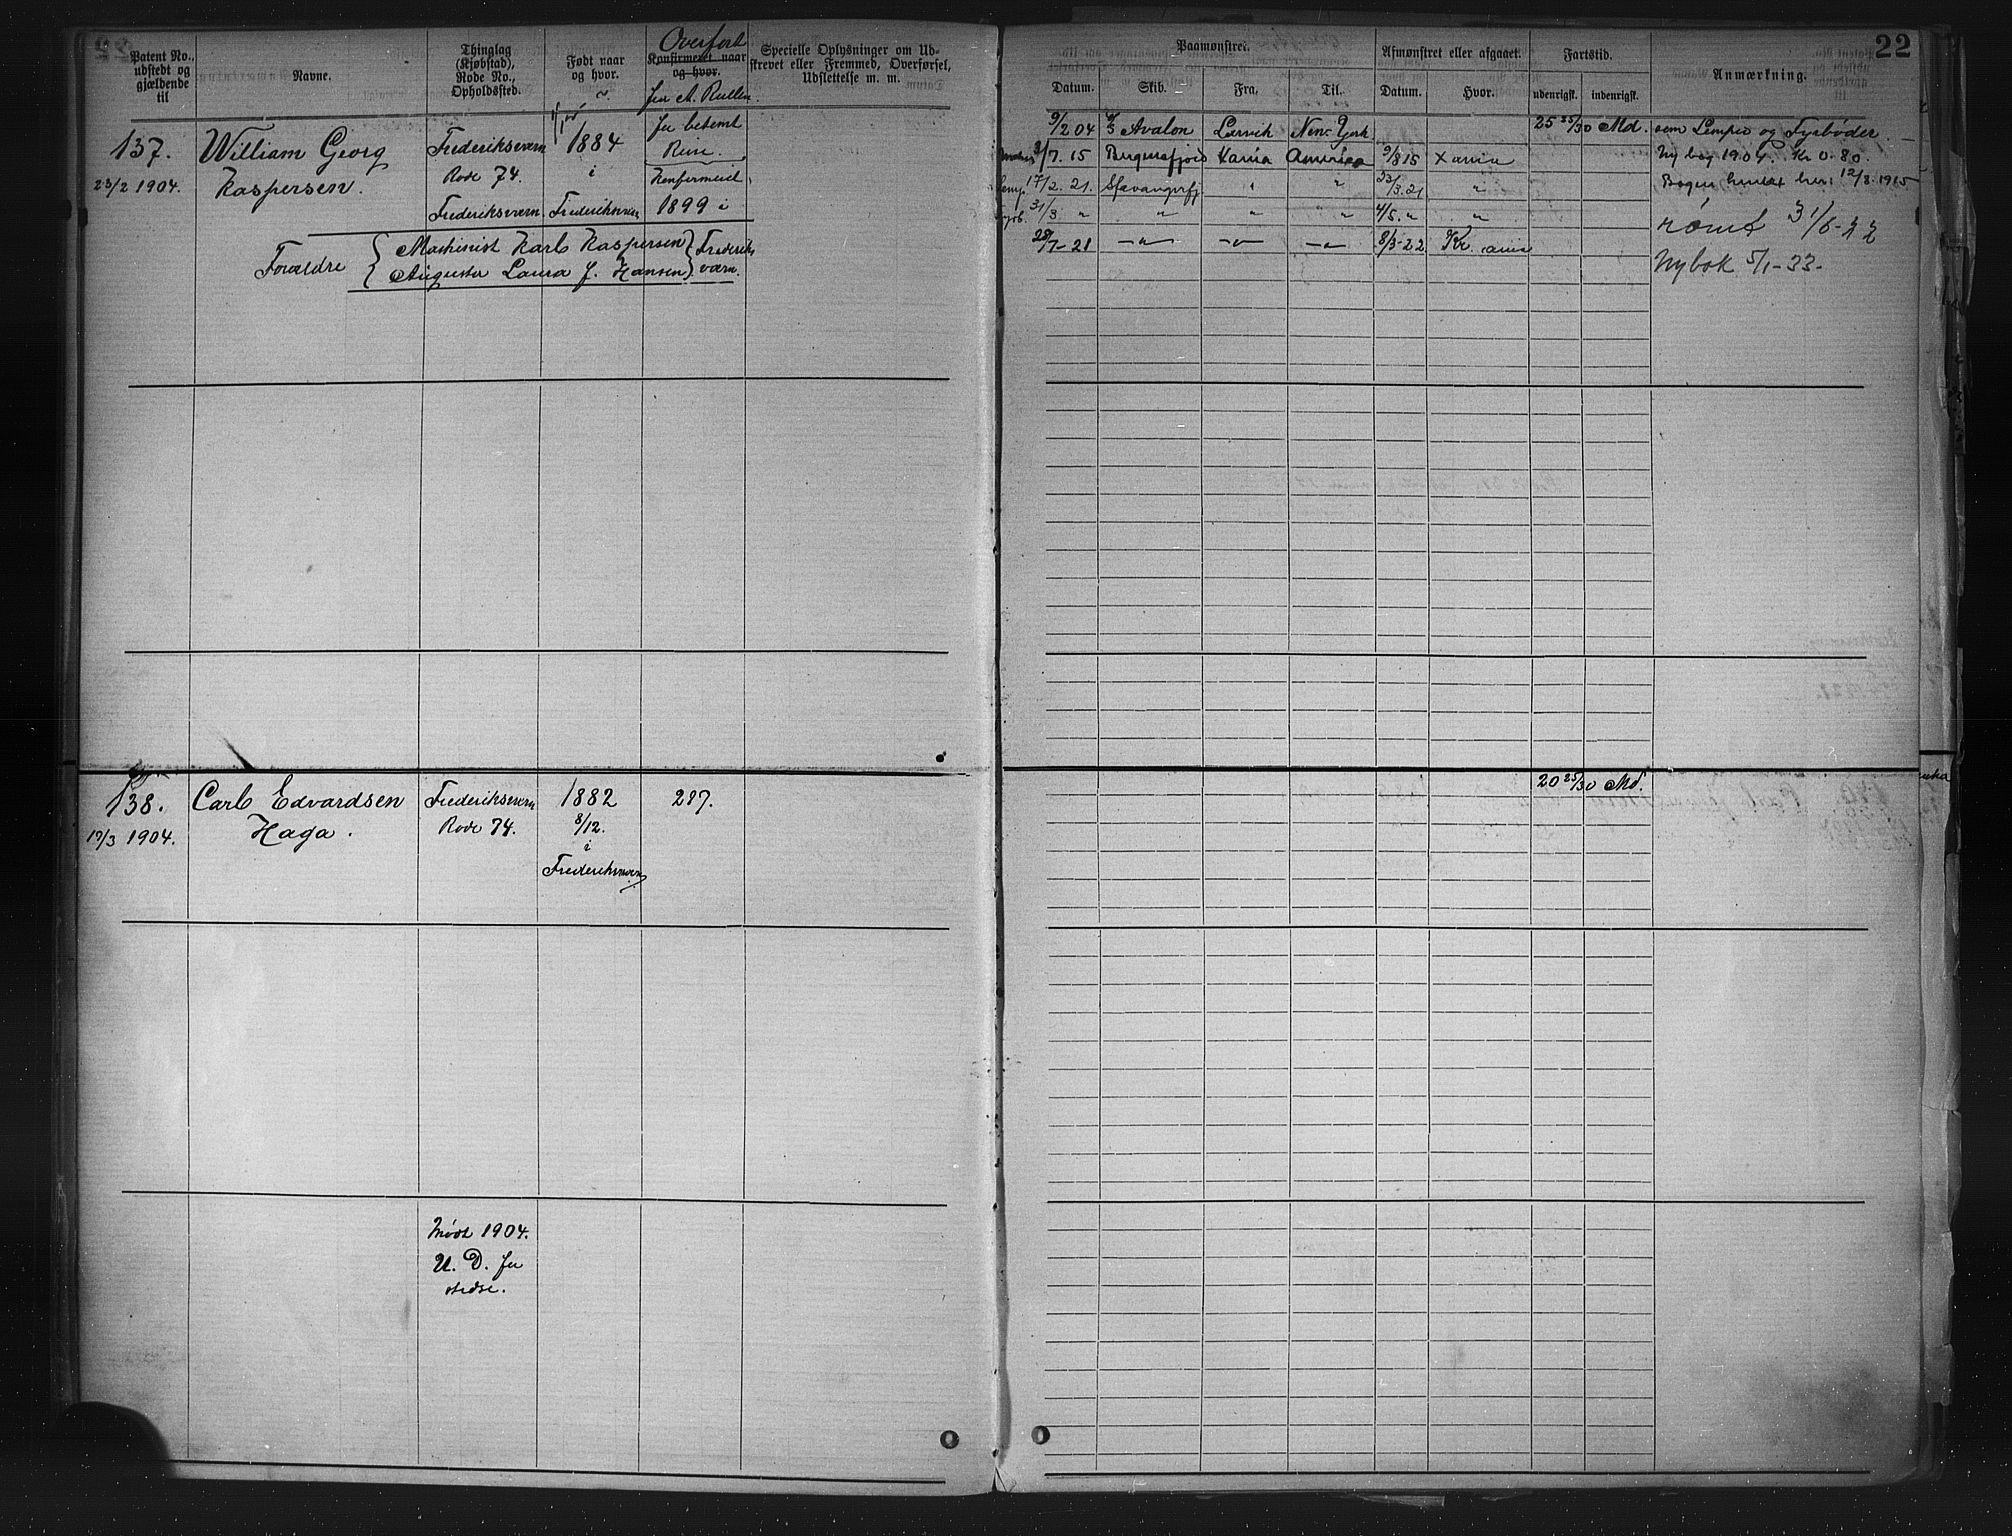 22
Patent No., udstedt og gjældende til
Navne.
Thinglag (Kjøbstad), Rode No., Opholdssted.
Født naar og hvor.
Overført
Konfirmeret naar og hvor.
fra A. Rullen.
Specielle Oplysninger om Udstrevet eller Fremmed, Overførsel, Udslettelse m. m.
Paamønstret.
Afmønstret eller afgaaet.
Fartstid.
Anmærkning.
Datum. Skib. Fra. Til. Datum. Hvor. udenrigsk. indenrigsk.
137.
23/2 1904.
William Georg
Kaspersen.
Frederiksværn
Rode 74.
Frederiksværn
1884
i
Frederiksværn
for bestemt
Reise.
Konfirmeret
1899 i
Frederiksværn.
Forældre
Maskinist Karl Kaspersen
Augusta Laura J. Hansen
9/2 04 Avalon Larvik New-York 25 25/30 Md. som Lemper og Fyrbøder.
/7. 15 Bergensfjord Xania Amerika 9/8 15 Xania Ny bog 1904. Kr 0.80.
Lemp. 17/2. 21. Stavangerfj. " " 23/3.21 " Bogen hentet her. 12/8. 1915
Fyrb. 31/3. " " " " 4/5. " " rømt 31/5-22
28/7-21 -"- -"- -"- 8/3-22 Kr.ania
Ny bok 5/1-33-
138.
19/3 1904.
Carl Edvardsen
Haga.
Frederiksværn
Rode 74.
1882
8/12.
i
Frederiksværn
287.
20 25/30 Md.
Mødt 1904.
U. D. for
stedse.